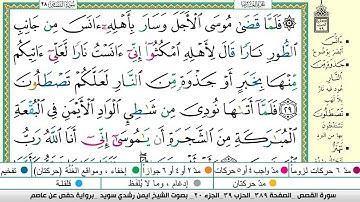 فَلَمَّا قَضَىٰ مُوسَى ٱلْأَجَلَ وَسَارَ بِأَهْلِهِۦٓ ءَانَسَ مِن جَانِبِ
ٱلطُّورِ نَارًا قَالَ لِأَهْلِهِ ٱمْكُثُوٓا۟ إِنِّىٓ ءَانَسْتُ نَارًا لَّعَلِّىٓ ءَاتِيكُم
مِّنْهَا بِخَبَرٍ أَوْ جَذْوَةٍ مِّنَ ٱلنَّارِ لَعَلَّكُمْ تَصْطَلُونَ
٢٩ فَلَمَّآ أَتَىٰهَا نُودِىَ مِن شَـٰطِئِ ٱلْوَادِ ٱلْأَيْمَنِ فِى ٱلْبُقْعَةِ
ٱلْمُبَـٰرَكَةِ مِنَ ٱلشَّجَرَةِ أَن يَـٰمُوسَىٰٓ إِنِّىٓ أَنَا ٱللَّهُ رَبُّ
مدّ ٦ حركات لزوماً مدّ ٢ أو ٤ أو ٦ جوازاً إخفاء، ومواقع الغُنَّة (حركتان) تفخيم
مدّ واجب ٤ أو ٥ حركات مدّ حركتان إدغام، وما لا يُلفَظ قلقلة
سورة القصص _ الصفحة ٣٨٩ _ الحزب ٣٩ _ الجزء ٢٠ _ بصوت الشيخ أيمن رشدي سويد _ برواية حفص عن عاصم